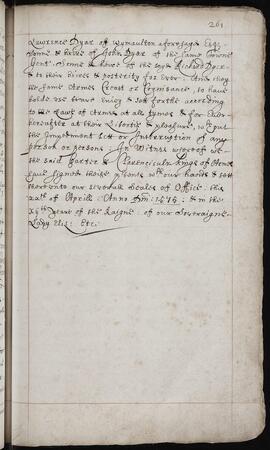 261
Lawrence Dyar of Wymaulton aforesayd Esq:
Sonne & heire of John Dyar of the same Towne
Gent: Sonne & heire of the sayd Richard Dyer
& to their heires & posterity for Ever: And they
the same Armes Creast or Cognisance, to have
hold use beare Enioy & sett forthe according
to the Lawes of Armes at all tymes & for Ever
hereafter at their Libertie & pleasure, without
the Impedement Lett or Interruption of any
person or persons: In Witnes whereof we
the said Garter & Clarenciulx Kings of Armes
have signed theise presents wth our hands & sett
thereunto our severall Seales of Office the
of Aprill Anno Dm: 1575: & in the
xvth yeare of the Raigne of our Soveraigne
Lady Eliz: Etc.